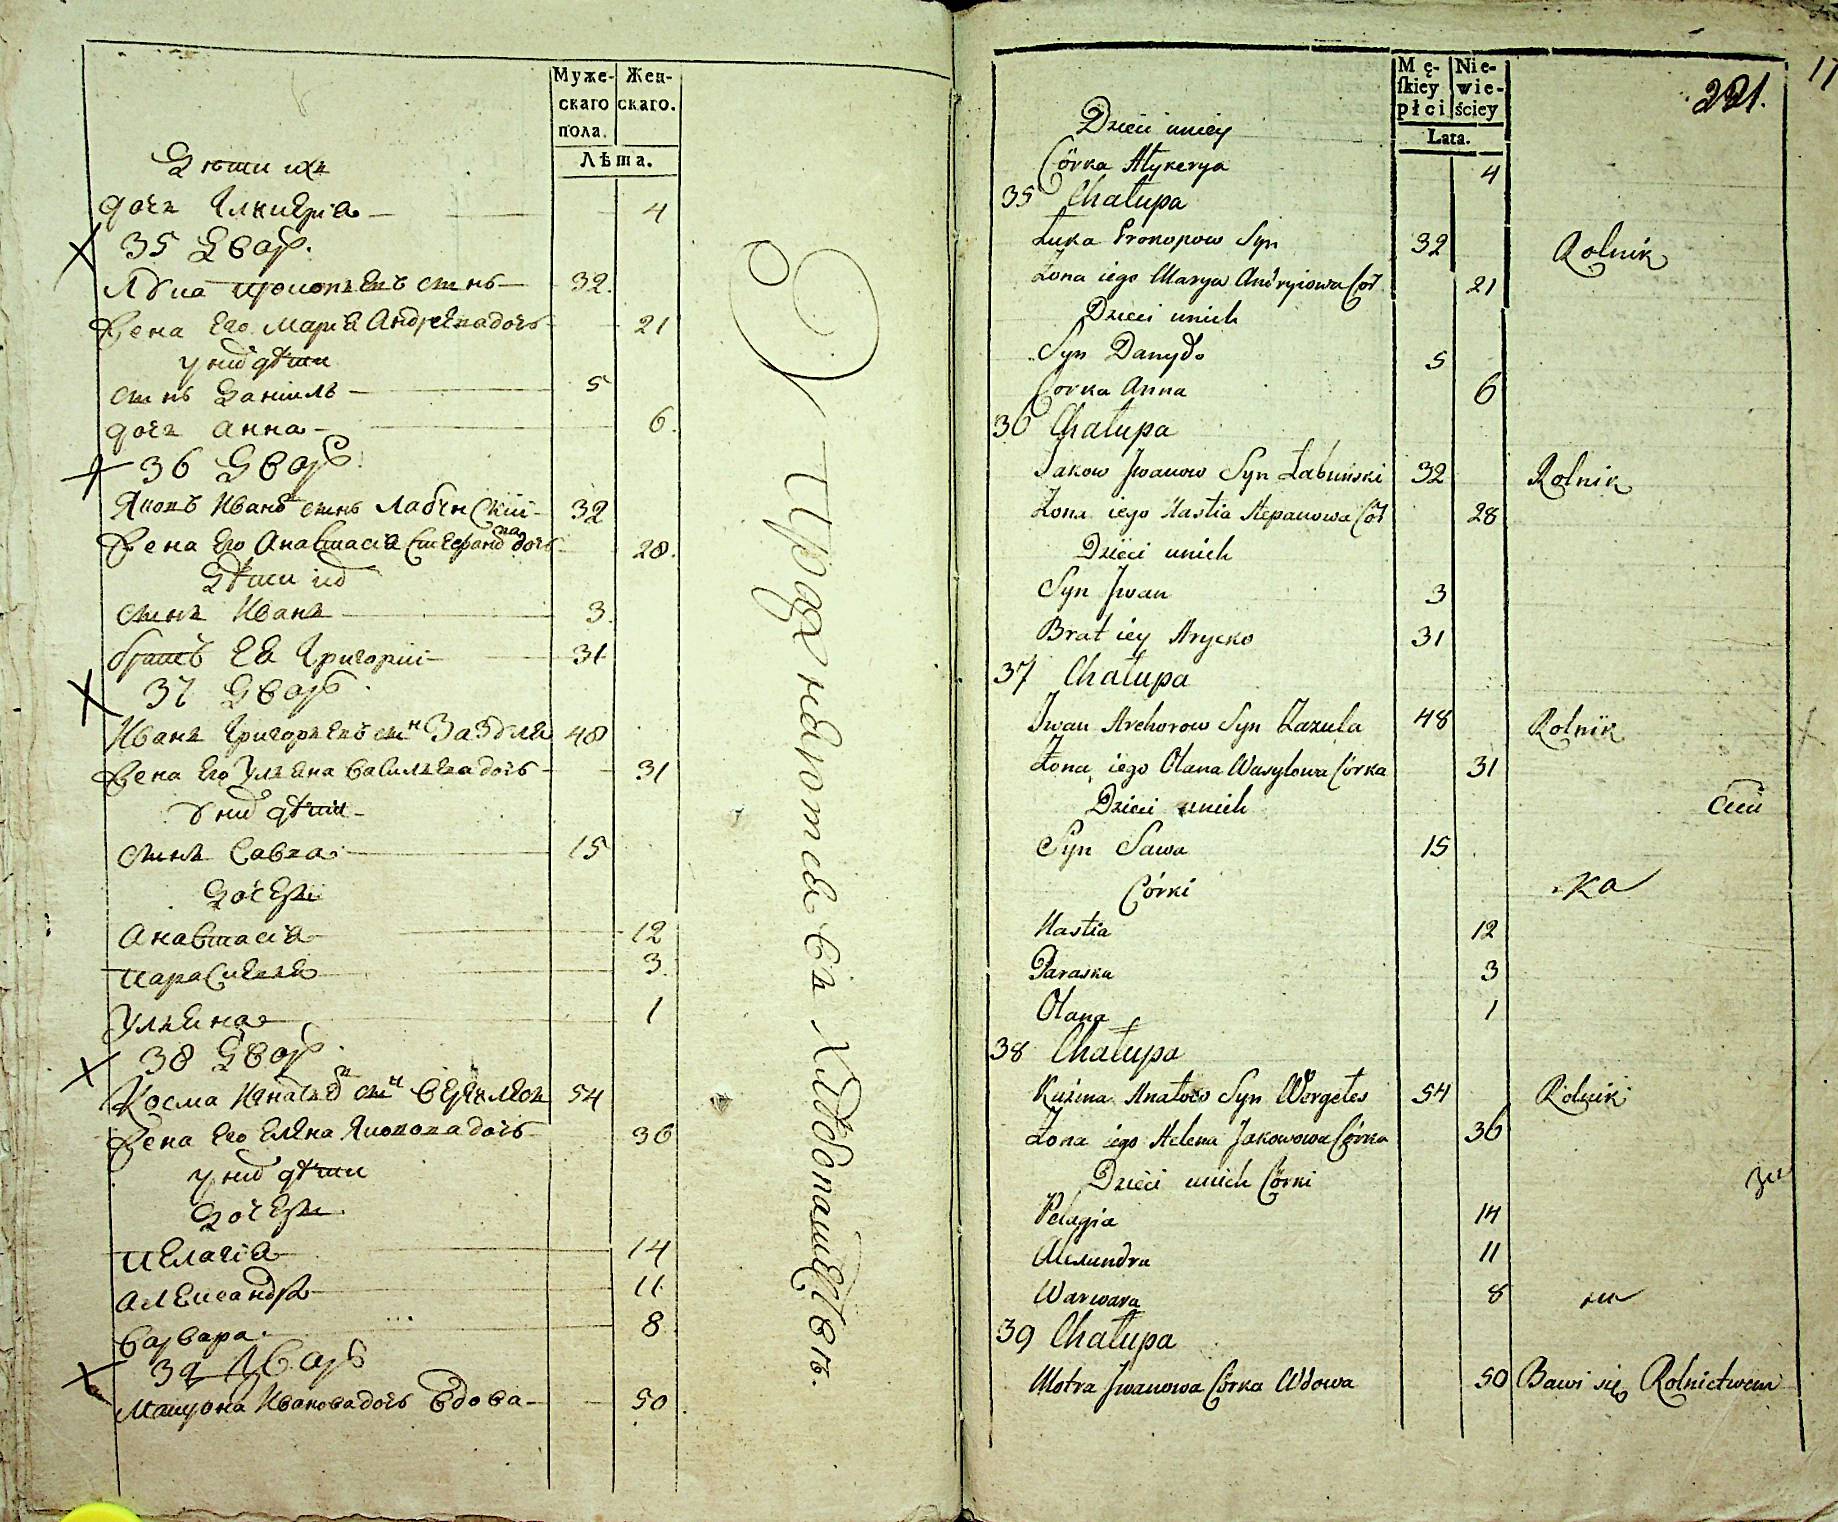 Муже-
скаго
пола.
Жен-
скаго.
Лѣта.
Дѣти ихъ
дочь Гликерїа 4
35 Дворъ.
Лука Прокопьевъ сынъ 32
Жена его Марїа Андреева дочь 21
у них дѣти
сынъ Данїилъ 5
дочь Анна 6.
36 Дворъ.
Яковъ Иванов сынъ Лабунскїй 32
Жена его Анастасїа Стефанова дочь 28.
Дѣти их
сынъ Иванъ 3
братъ ея Григорїй 31
37 Дворъ.
Иванъ Григорьевъ сын Зазуля 48
Жена его Ульяна Васильева дочь 31
У них дѣти
сынъ Савва 15
Дочери
Анастасїа 12
Параскева 3
Ульяна 1
38 Дворъ.
Косма Игнатьев сын 54
Жена его Елена Яковова дочь 36
у них дѣти
Дочери
Пелагїа 14
Александра 11
Варвара 8
39 Дворъ
Матрона Иванова дочь вдова 50
Упражняются въ хлебопашестве.
Mę-
ſkiey
płci
Nie-
wie-
ściey
Lata.
221.
17
Dzieci uniey
Córka Hłykerya 4
35 Chałupa
Łuka Prokopow Syn 32 Rolnik
Żona iego Marya Andryiowa Cór 21
Dzieci unich
Syn Danyło 5
Corka Anna 6
36 Chałupa
Jakow Jwanow Syn Łabuński 32 Rolnik
Żona iego Nastia Stepanowa Cór 28
Dzieci unich
Syn Jwan 3
Brat iey Hrycko 31
37 Chałupa
Jwan Hrehorow Syn Zazula 48 Rolnik
Żona iego Olana Wasylowa Córka 31
Dzieci unich
Syn Sawa 15
Córki
ка
Nastia 12
Paraska 3
Olana 1
38 Chałupa
Kuzma Hnatow Syn Wergeles 54 Rolnik
Żona iego Helena Jakowowa Córka 36
Dzieci unich Córki
Pelagia 14
Alexandra 11
Warwara 8
39 Chałupa
Motra Jwanowa Córka Wdowa 50 Bawi się Rolnictwem